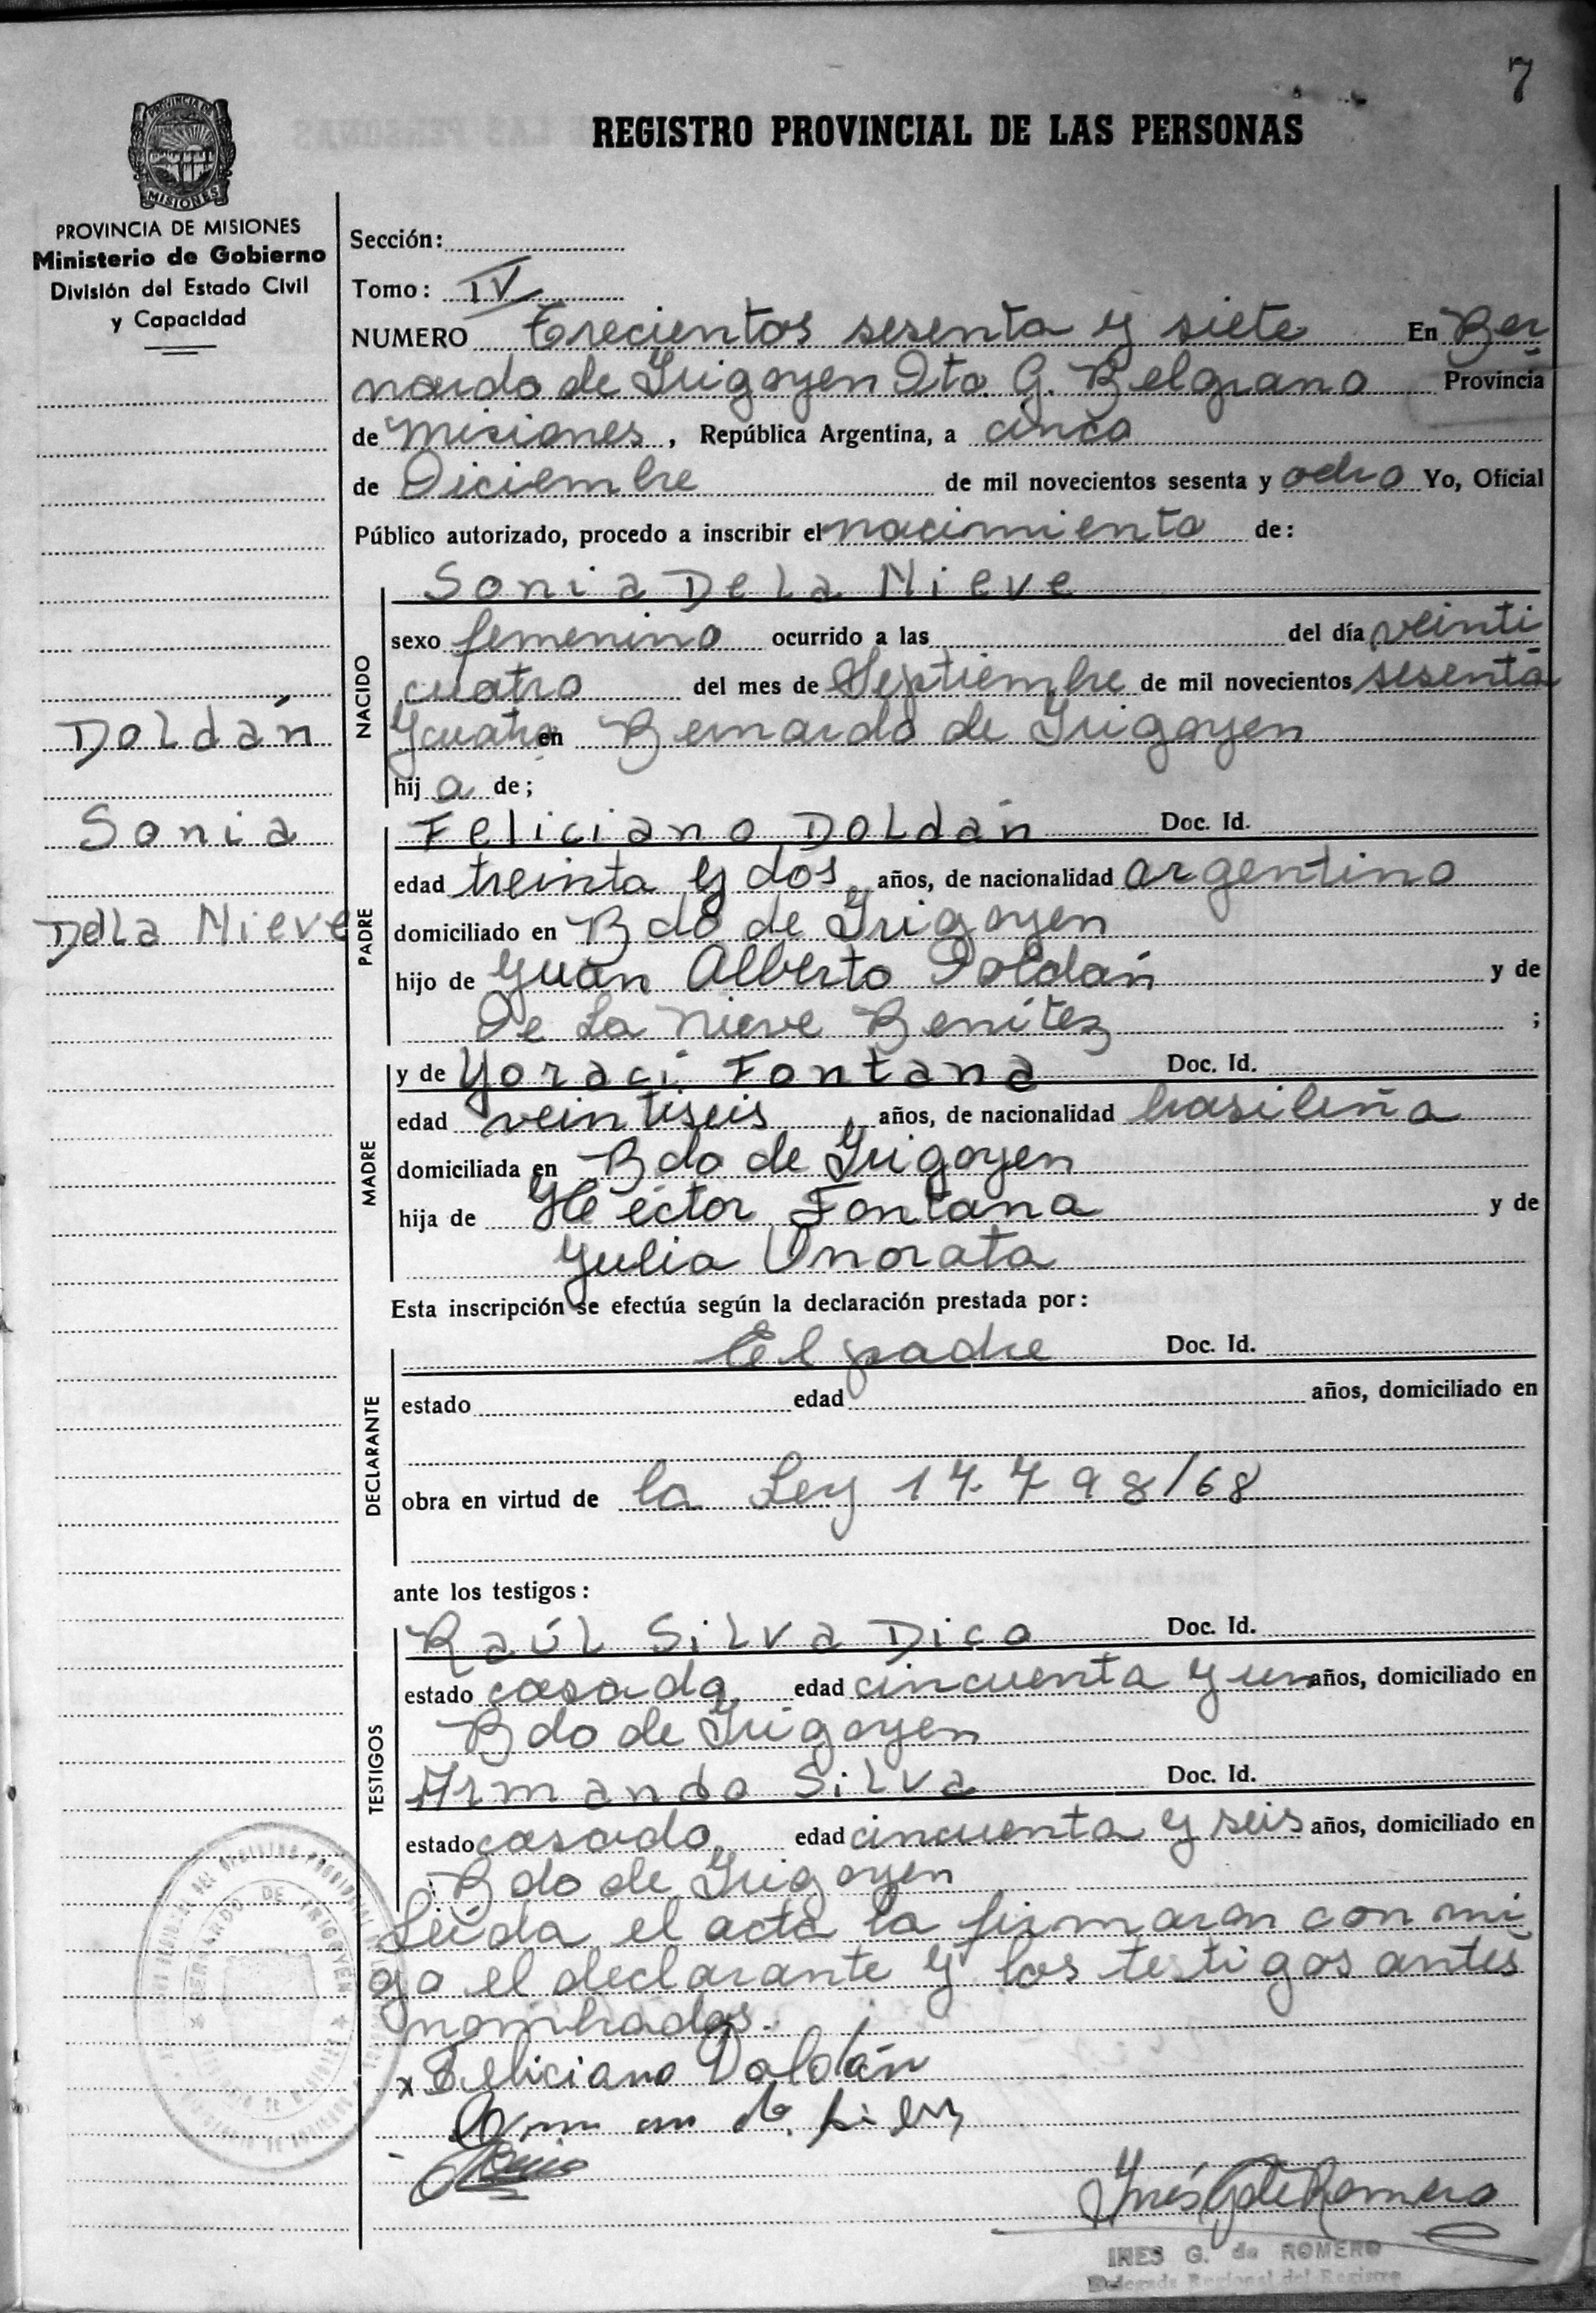 7
REGISTRO PROVINCIAL DE LAS PERSONAS
PROVINCIA DE
MISIONES
PROVINCIA DE MISIONES
Ministerio de Gobierno
División del Estado Civil
y Capacidad
Doldán
Sonia
De La Nieve
Sección:
Tomo: IV
NUMERO Trecientos sesenta y siete En Ber
nardo de Irigoyen Dto. G. Belgrano Provincia
de Misiones, República Argentina, a cinco
de Diciembre de mil novecientos sesenta y ocho Yo, Oficial
Público autorizado, procedo a inscribir el nacimiento de:
Sonia De La Nieve
NACIDO
sexo femenino ocurrido a las del día veinti
cuatro del mes de Septiembre de mil novecientos sesenta
y cuatro en Bernardo de Irigoyen
hij a de;
PADRE
Feliciano Doldán Doc. Id.
edad treinta y dos, años, de nacionalidad argentino
domiciliado en Bdo de Irigoyen
hijo de Yuan Alberto Doldán y de
De La Nieve Benítez ;
MADRE
y de Yoraci Fontana Doc. Id.
edad veintiseis, años, de nacionalidad brasileña
domiciliada en Bdo de Irigoyen
hija de Héctor Fontana y de
Yulia Onorata
Esta inscripción se efectúa según la declaración prestada por:
DECLARANTE
El padre Doc. Id.
estado edad años, domiciliado en
obra en virtud de la Ley 17.798/68
ante los testigos:
TESTIGOS
Raúl Silva Dico Doc. Id.
estado casado edad cincuenta y un años, domiciliado en
Bdo de Irigoyen
Armando Silva Doc. Id.
estado casado edad cincuenta y seis años, domiciliado en
Bdo de Irigoyen
Leída el acta la firmaran con mi
go el declarante y los testigos antes
nombrados.
x Feliciano Doldán
Inés G de Romero
INES G. de ROMERO
Delegada Regional del Registro
BERNARDO DE IRIGOYEN